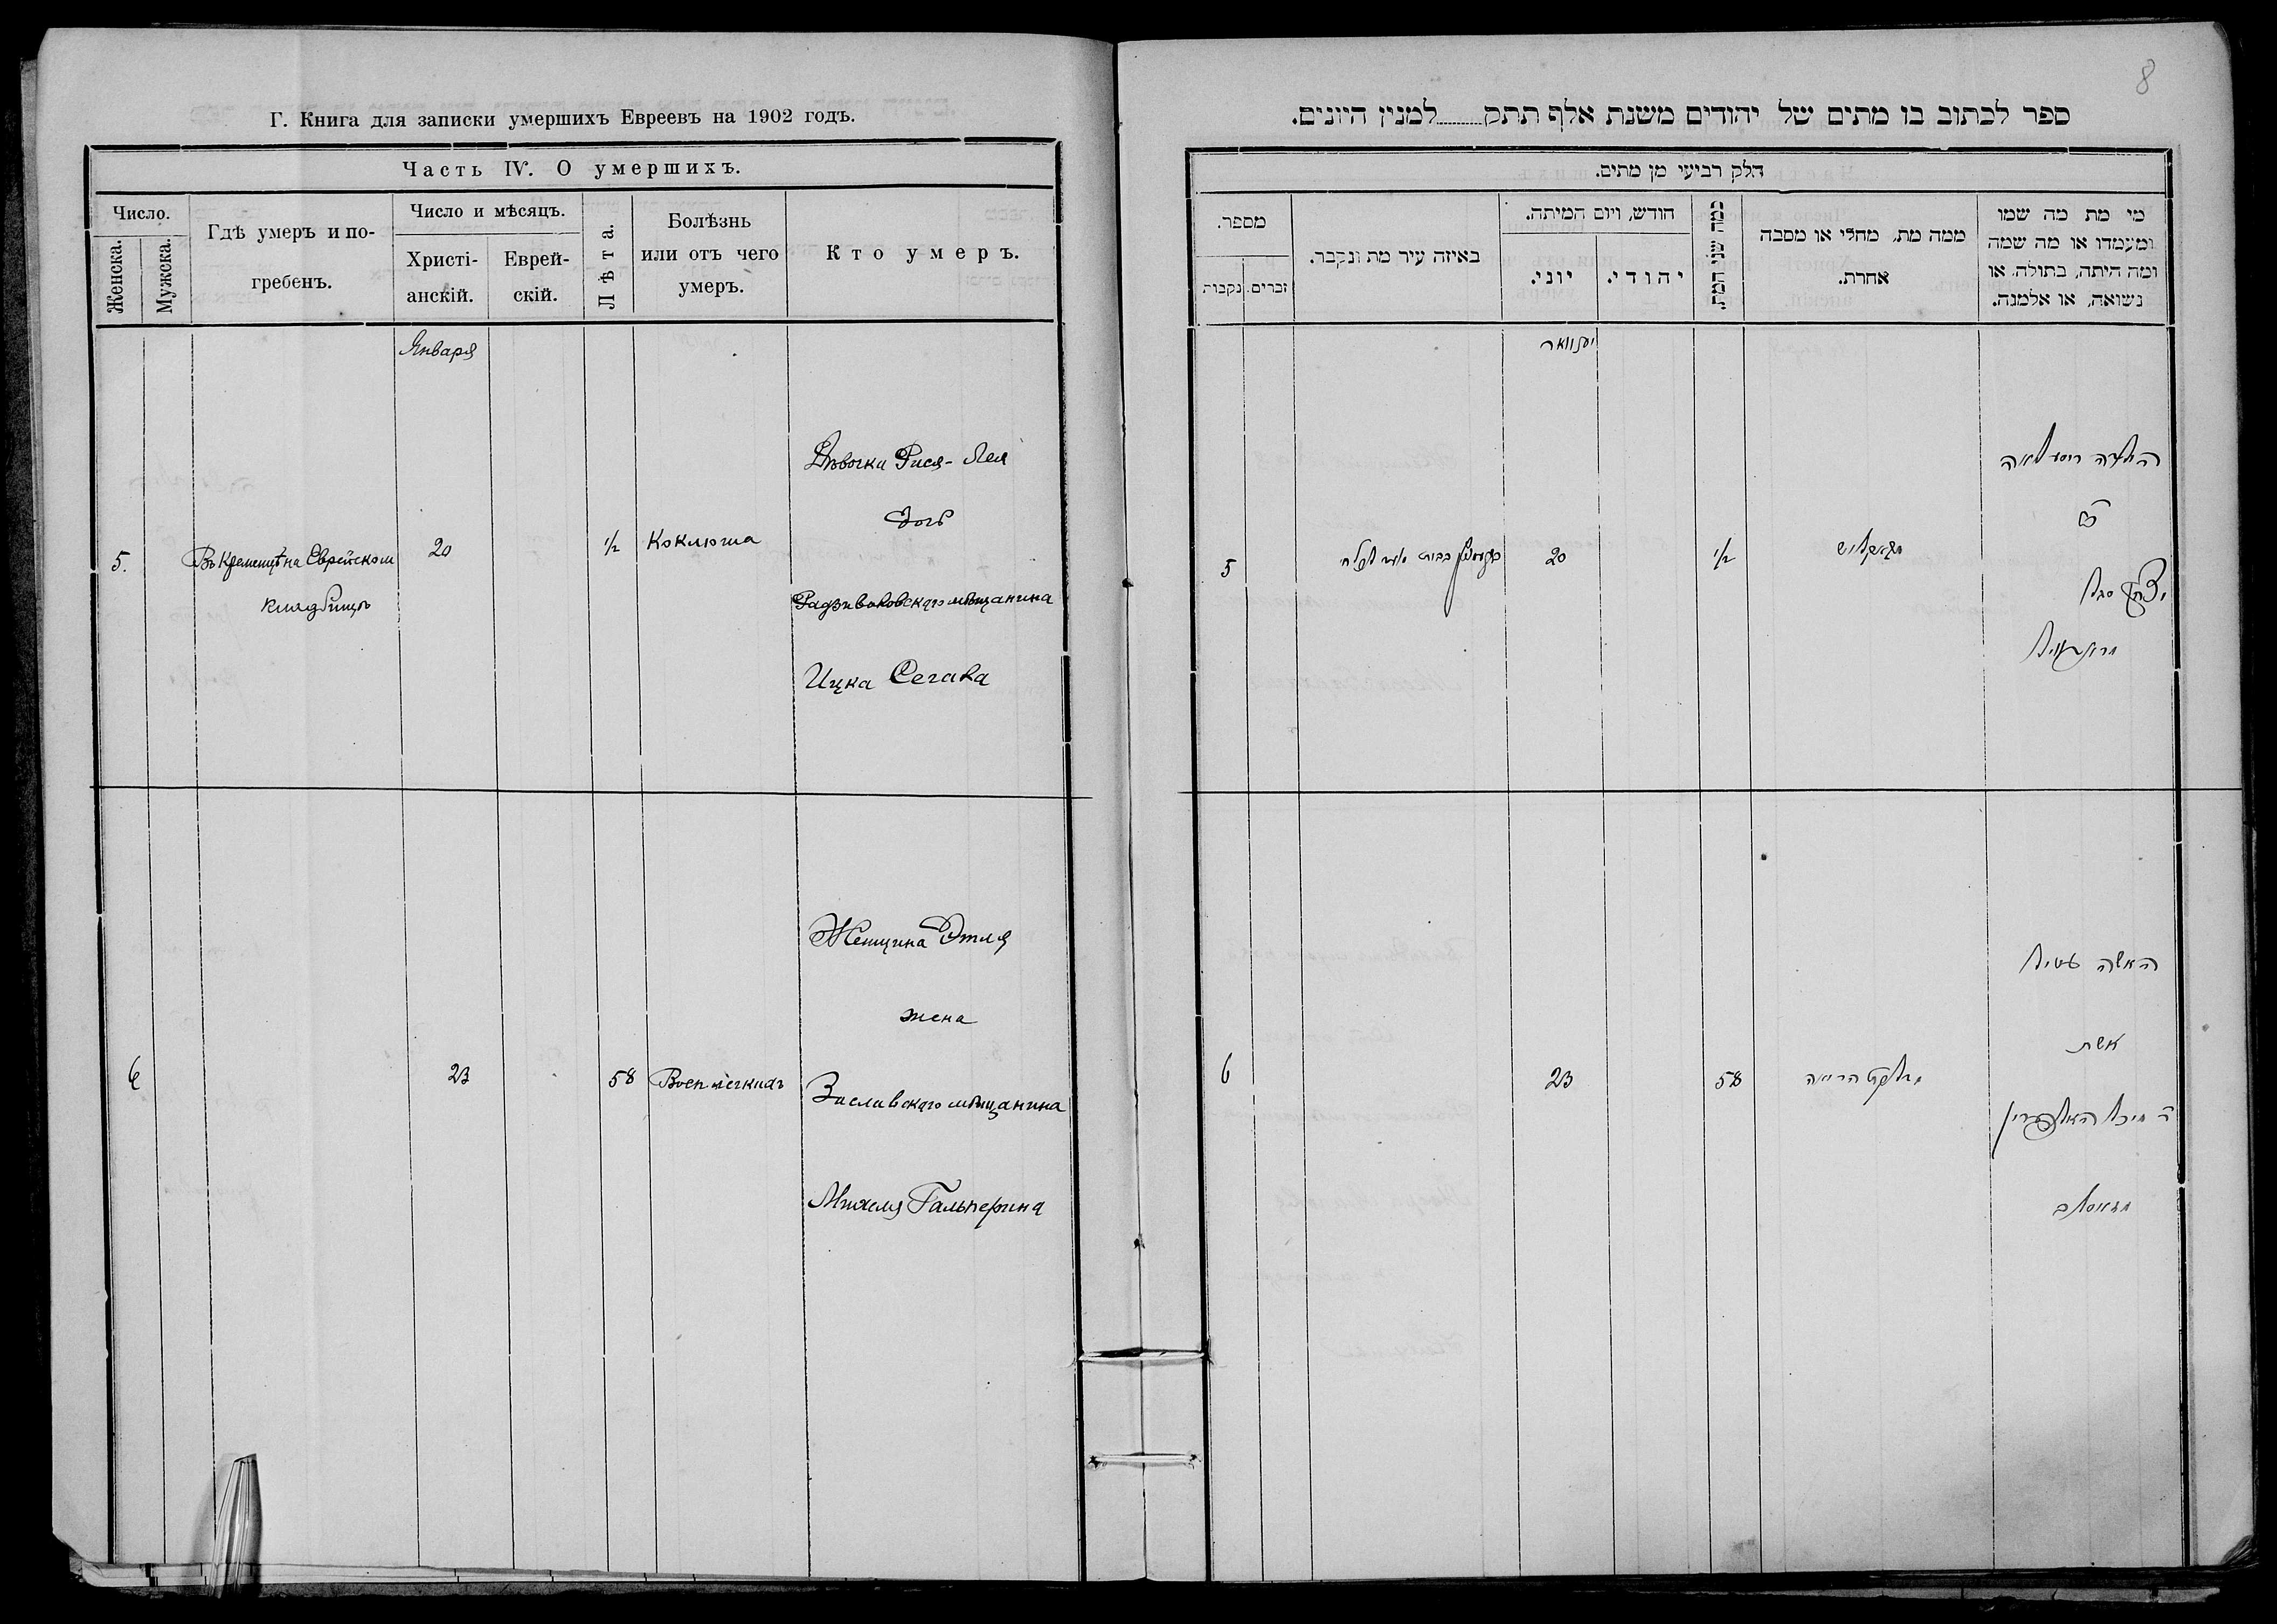 Г. Книга для записки умершихъ Евреевъ на 1902 годъ.
Часть IV. О умершихъ.
Число.
Женска.
Мужска.
Гдѣ умеръ и по-
гребенъ.
Число и мѣсяцъ.
Христі-
анскій.
Еврей-
скій.
Лѣта.
Болѣзнь
или отъ чего
умеръ.
Кто умеръ.
Января
5.
Въ Кременцѣ на Еврейском
кладбищѣ
20
1/2
Коклюша
Дѣвочка Рися-Лея
дочь
Радзивиловскаго мѣщанина
Ицка Сегала
6
23
58
Восп легкихъ
Женщина Этля
жена
Заславскаго мѣщанина
Михеля Гальперина
8
ספר לכתוב בו מתים של יהודים משנת אלף תתק למנין היונים.
חלק רביעי מן מתים.
מספר.
נקבות
זכרים.
באיזה עיר מת ונקבר.
חודש, ויום המיתה.
יוני.
יהודי.
כמה שני המת.
ממה מת, מחלי או מסבה
אחרת.
מי מת מה שמו
ומעמדו או מה שמה
ומה היתה, בתולה, או
נשואה, או אלמנה.
יענוואר
5
20
1/2
הילדה ריסע לאה
ב״ר
יצחק סגל
6
23
58
דלקת הריאה
האשה עטיל
אשת
ר מיכל האלפערין